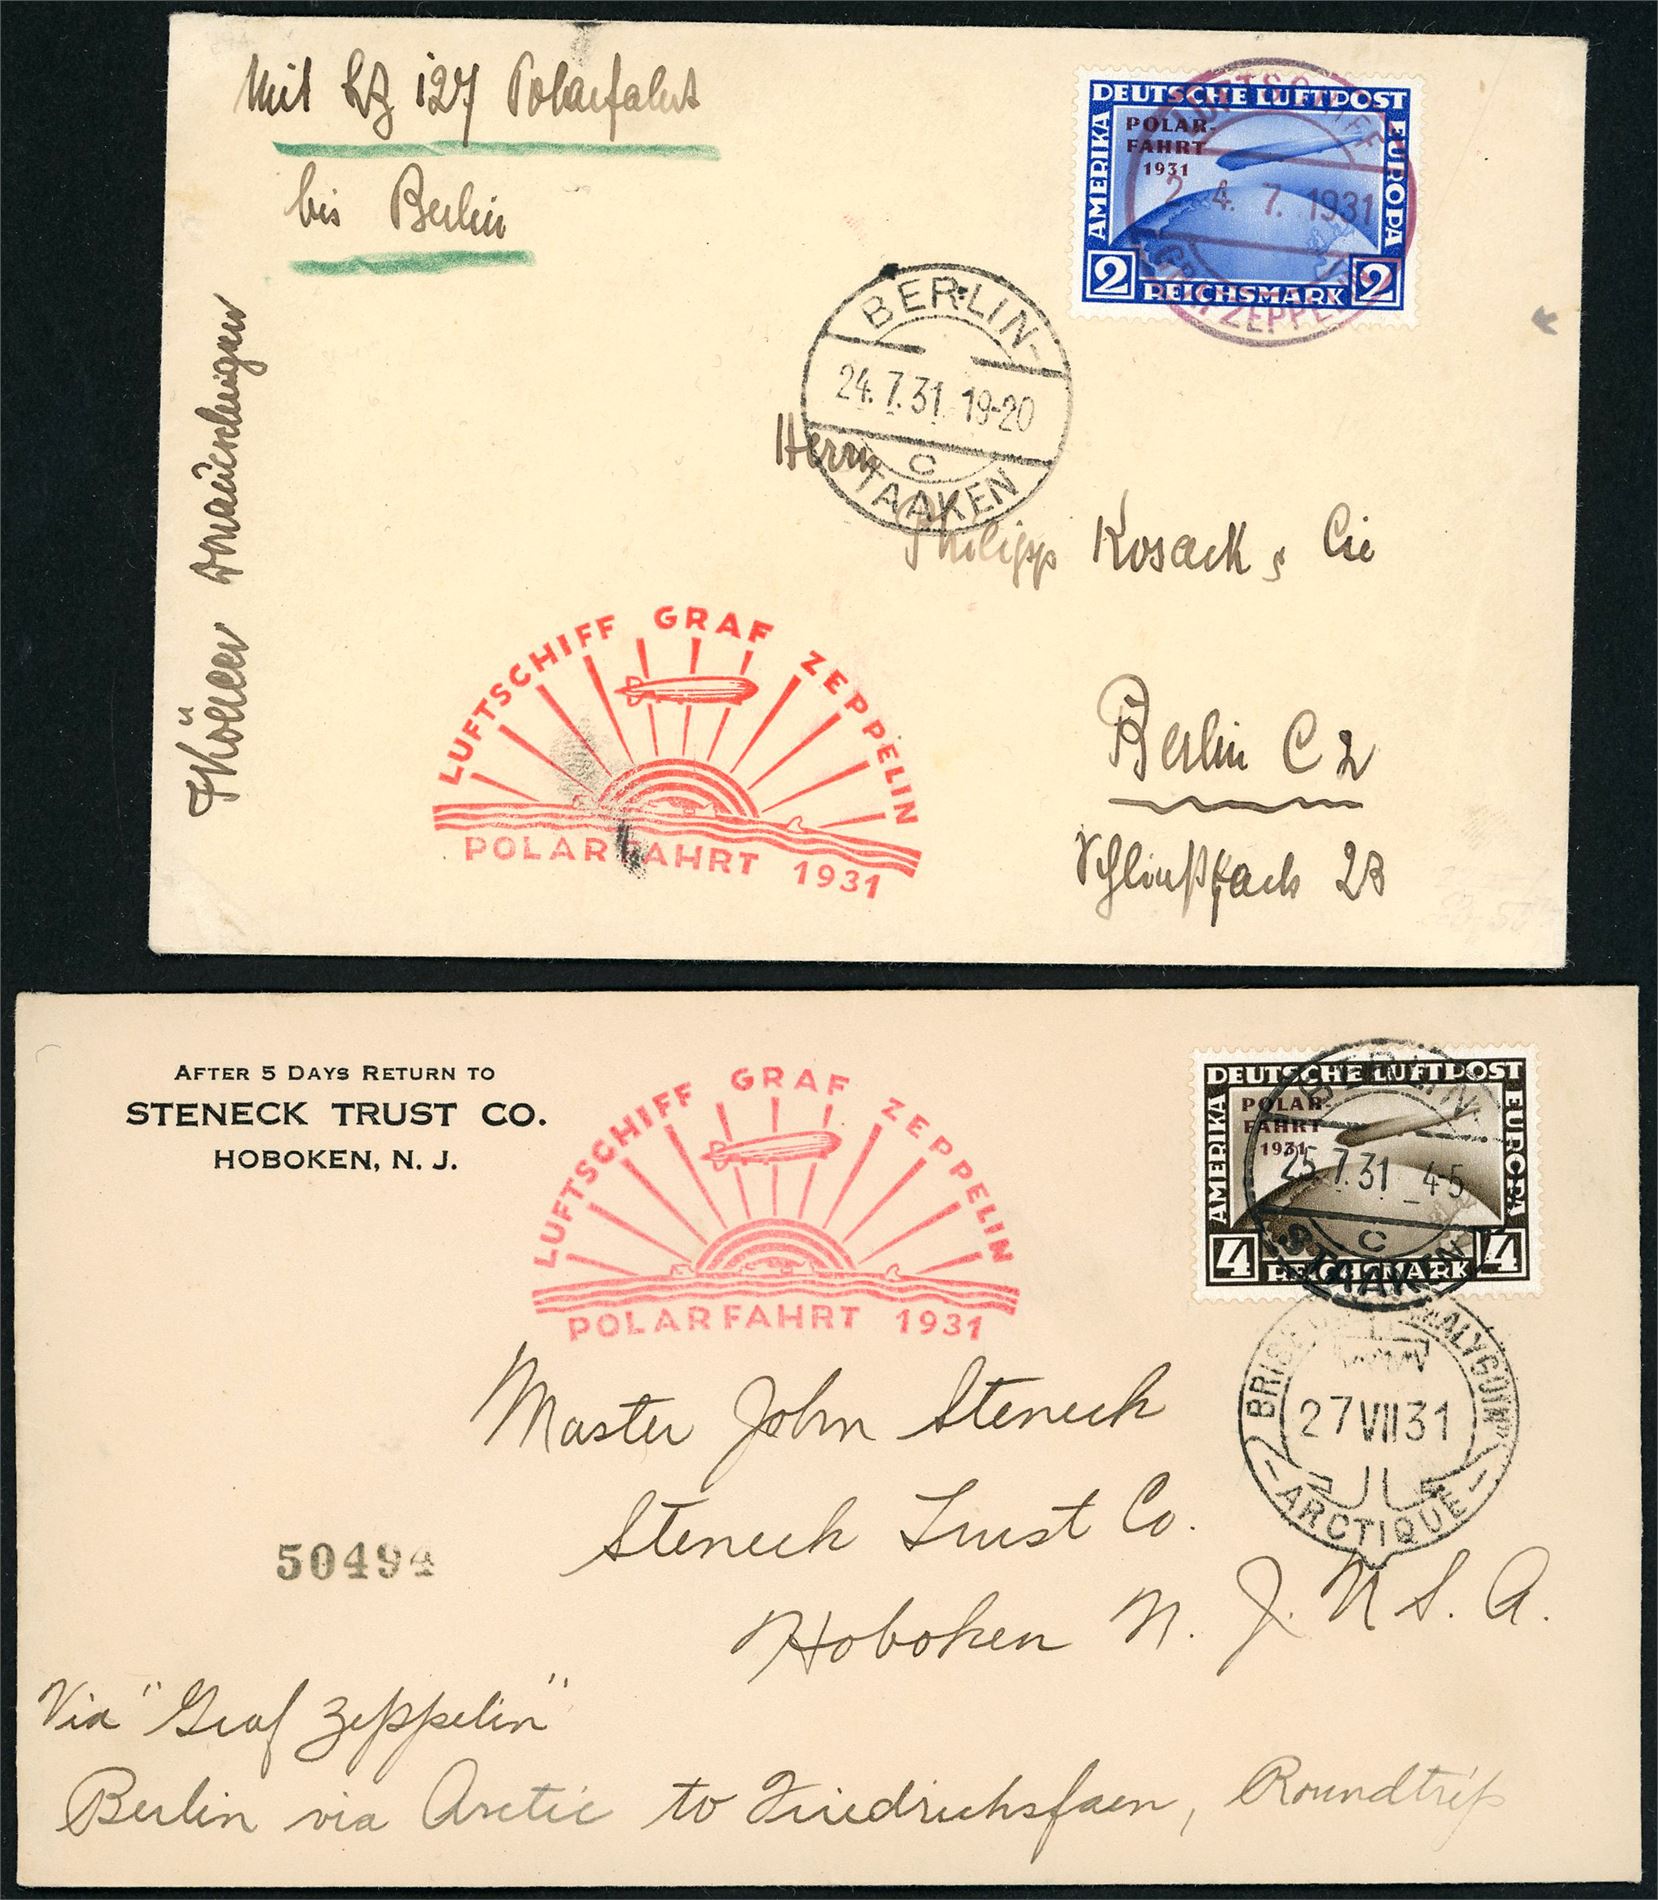 Mit LZ 127 Polarfahrt
bis Berlin
DEUTSCHE LUFTPOST
AMERIKA
EUROPA
POLAR-
FAHRT
1931
2 REICHSMARK 2
LUFTSCHIFF
24. 7. 1931
GRAF ZEPPELIN
BERLIN-
24.7.31 19-20
C
STAAKEN
Herrn
Philipp Kosack & Cie
Berlin C 2
Schließfach 23
Donaueschingen
LUFTSCHIFF GRAF ZEPPELIN
POLARFAHRT 1931
AFTER 5 DAYS RETURN TO
STENECK TRUST CO.
HOBOKEN, N. J.
LUFTSCHIFF GRAF ZEPPELIN
POLARFAHRT 1931
DEUTSCHE LUFTPOST
AMERIKA
EUROPA
POLAR-
FAHRT
1931
4 REICHSMARK 4
BERLIN
25.7.31 4-5
C
STAAKEN
MALYGUIN
27 VII 31
ARCTIQUE
Master John Steneck
Steneck Trust Co.
Hoboken N. J. U. S. A.
50494
Via "Graf Zeppelin"
Berlin via Arctic to Friedrichsfaen, Roundtrip